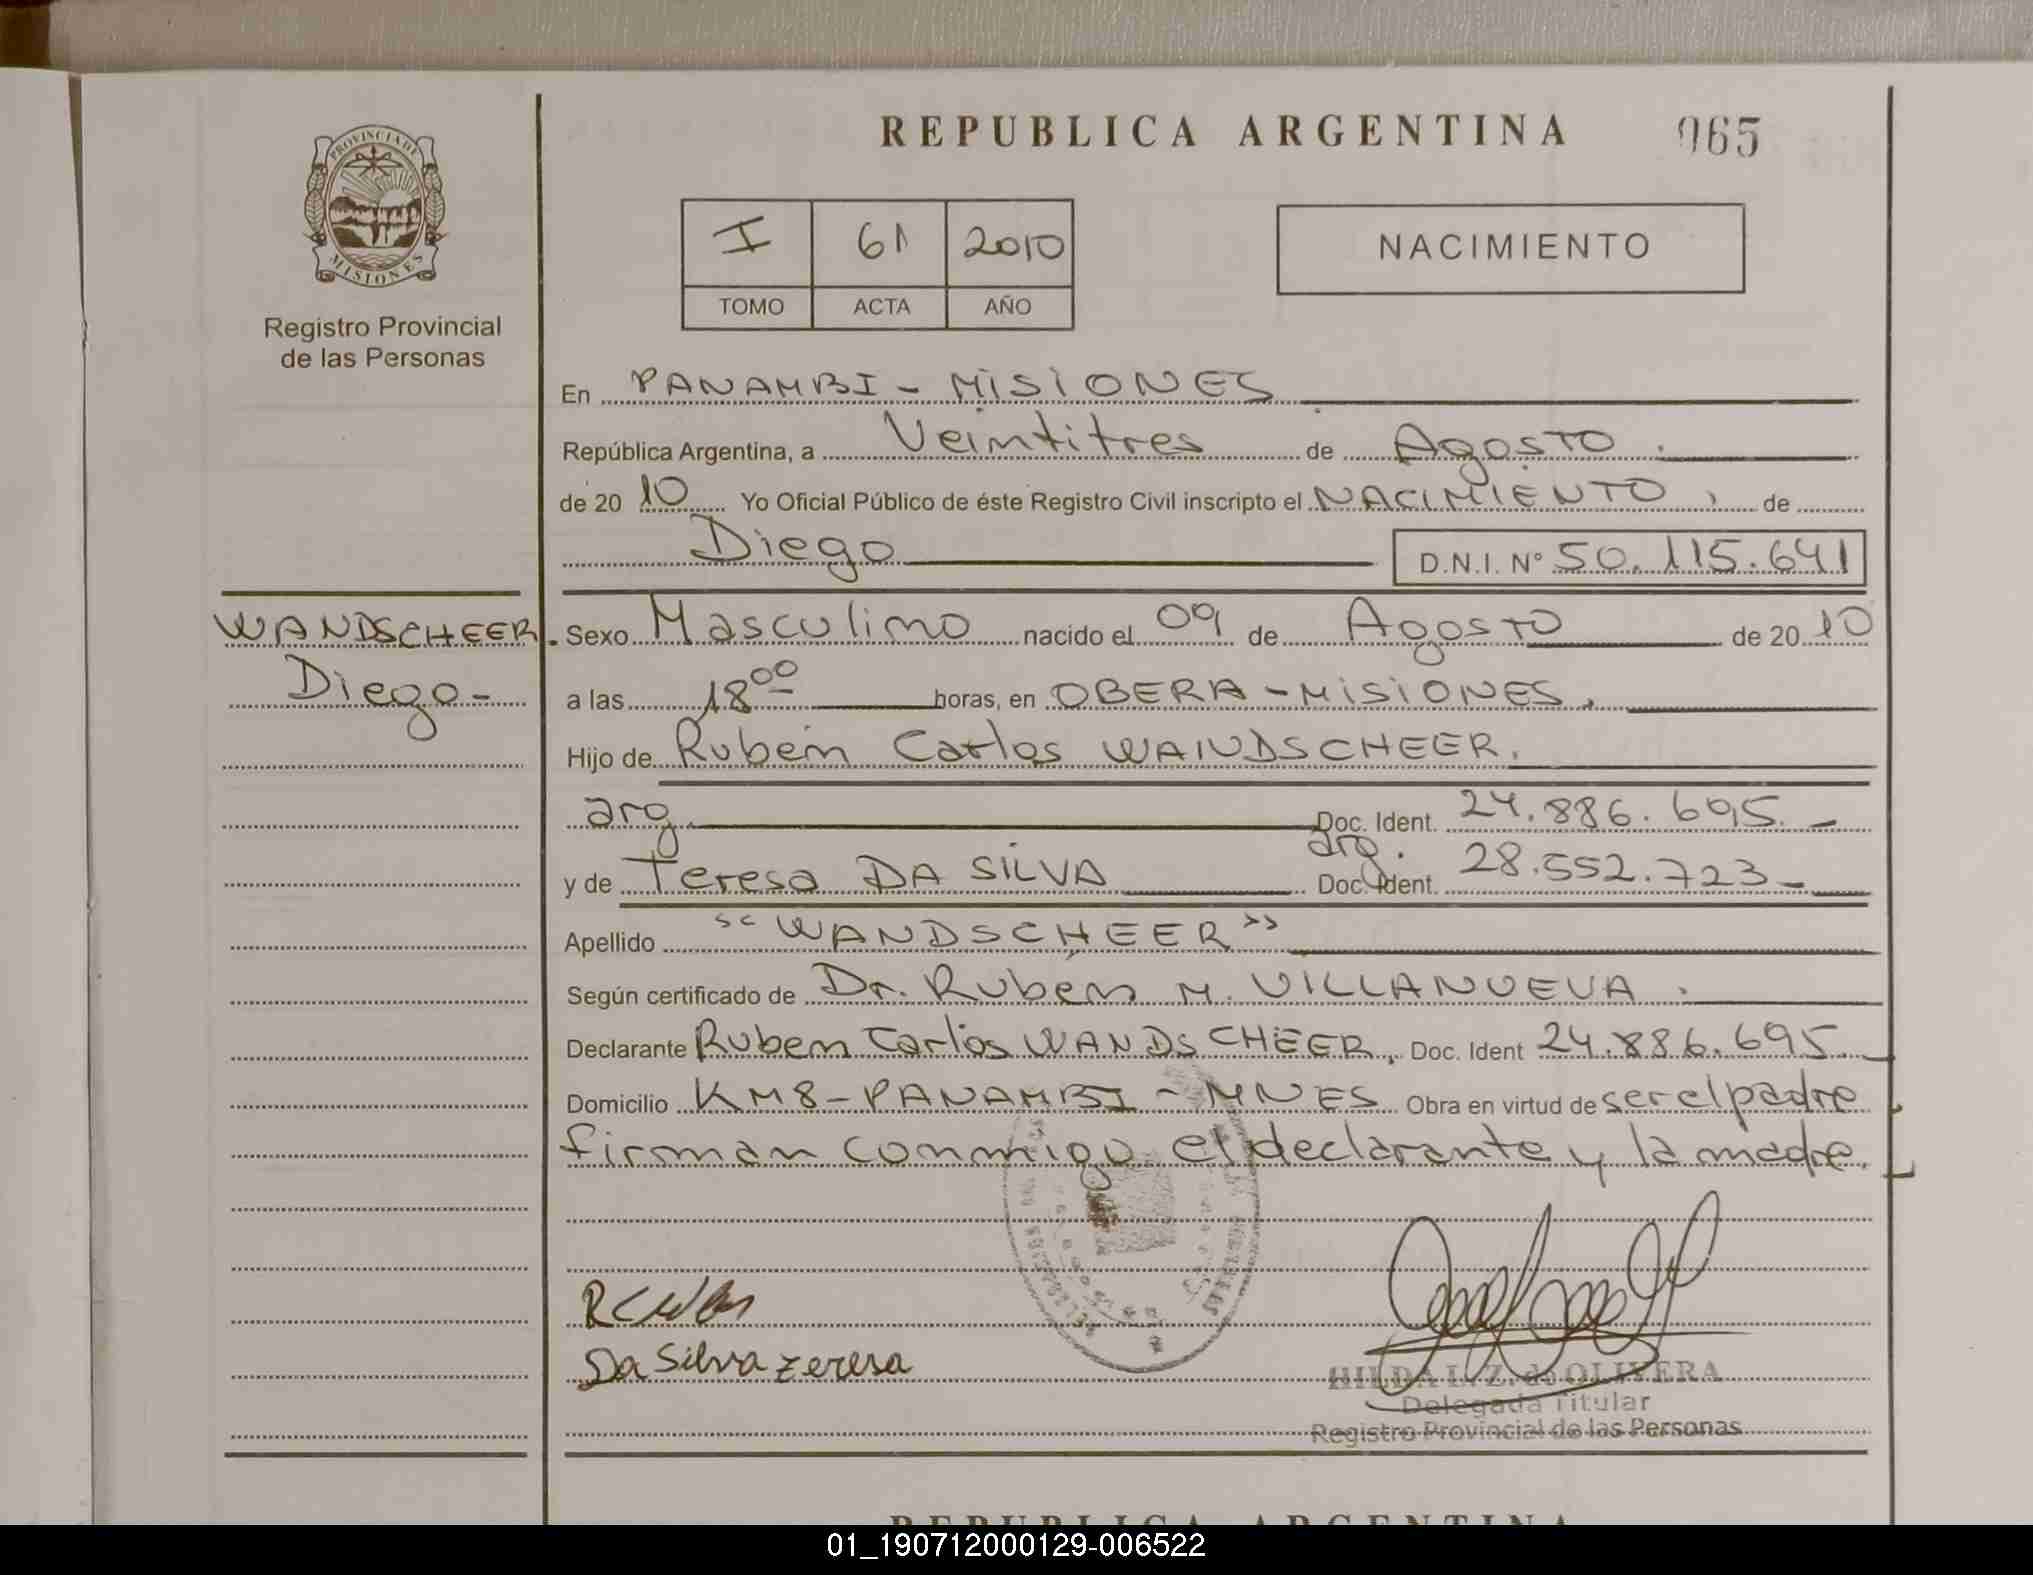 PROVINCIA DE
MISIONES
Registro Provincial
de las Personas
WANDSCHEER.
Diego-
REPUBLICA ARGENTINA 065
I 61 2010
TOMO ACTA AÑO
NACIMIENTO
En PANAMBI - MISIONES
República Argentina, a Veintitres de Agosto.
de 20 10 Yo Oficial Público de éste Registro Civil inscripto el NACIMIENTO, de
Diego D.N.I. N° 50.115.641
Sexo Masculino nacido el 09 de Agosto de 20 10
a las 18 00 horas, en OBERA - MISIONES,
Hijo de Rubén Carlos WANDSCHEER.
arg. Doc. Ident. 24.886.695.-
arg.
y de Teresa DA SILVA Doc. Ident. 28.552.723-
Apellido "WANDSCHEER"
Según certificado de Dr. Rubén M. VILLANUEVA.
Declarante Ruben Carlos WANDSCHEER, Doc. Ident 24.886.695.-
Domicilio KM8-PANAMBI - MNES Obra en virtud de ser el padre
firman conmigo el declarante y la madre.
Da Silva Teresa
HILDA L. Z. de OLIVERA
Delegada Titular
Registro Provincial de las Personas
REPUBLICA ARGENTINA
01_190712000129-006522